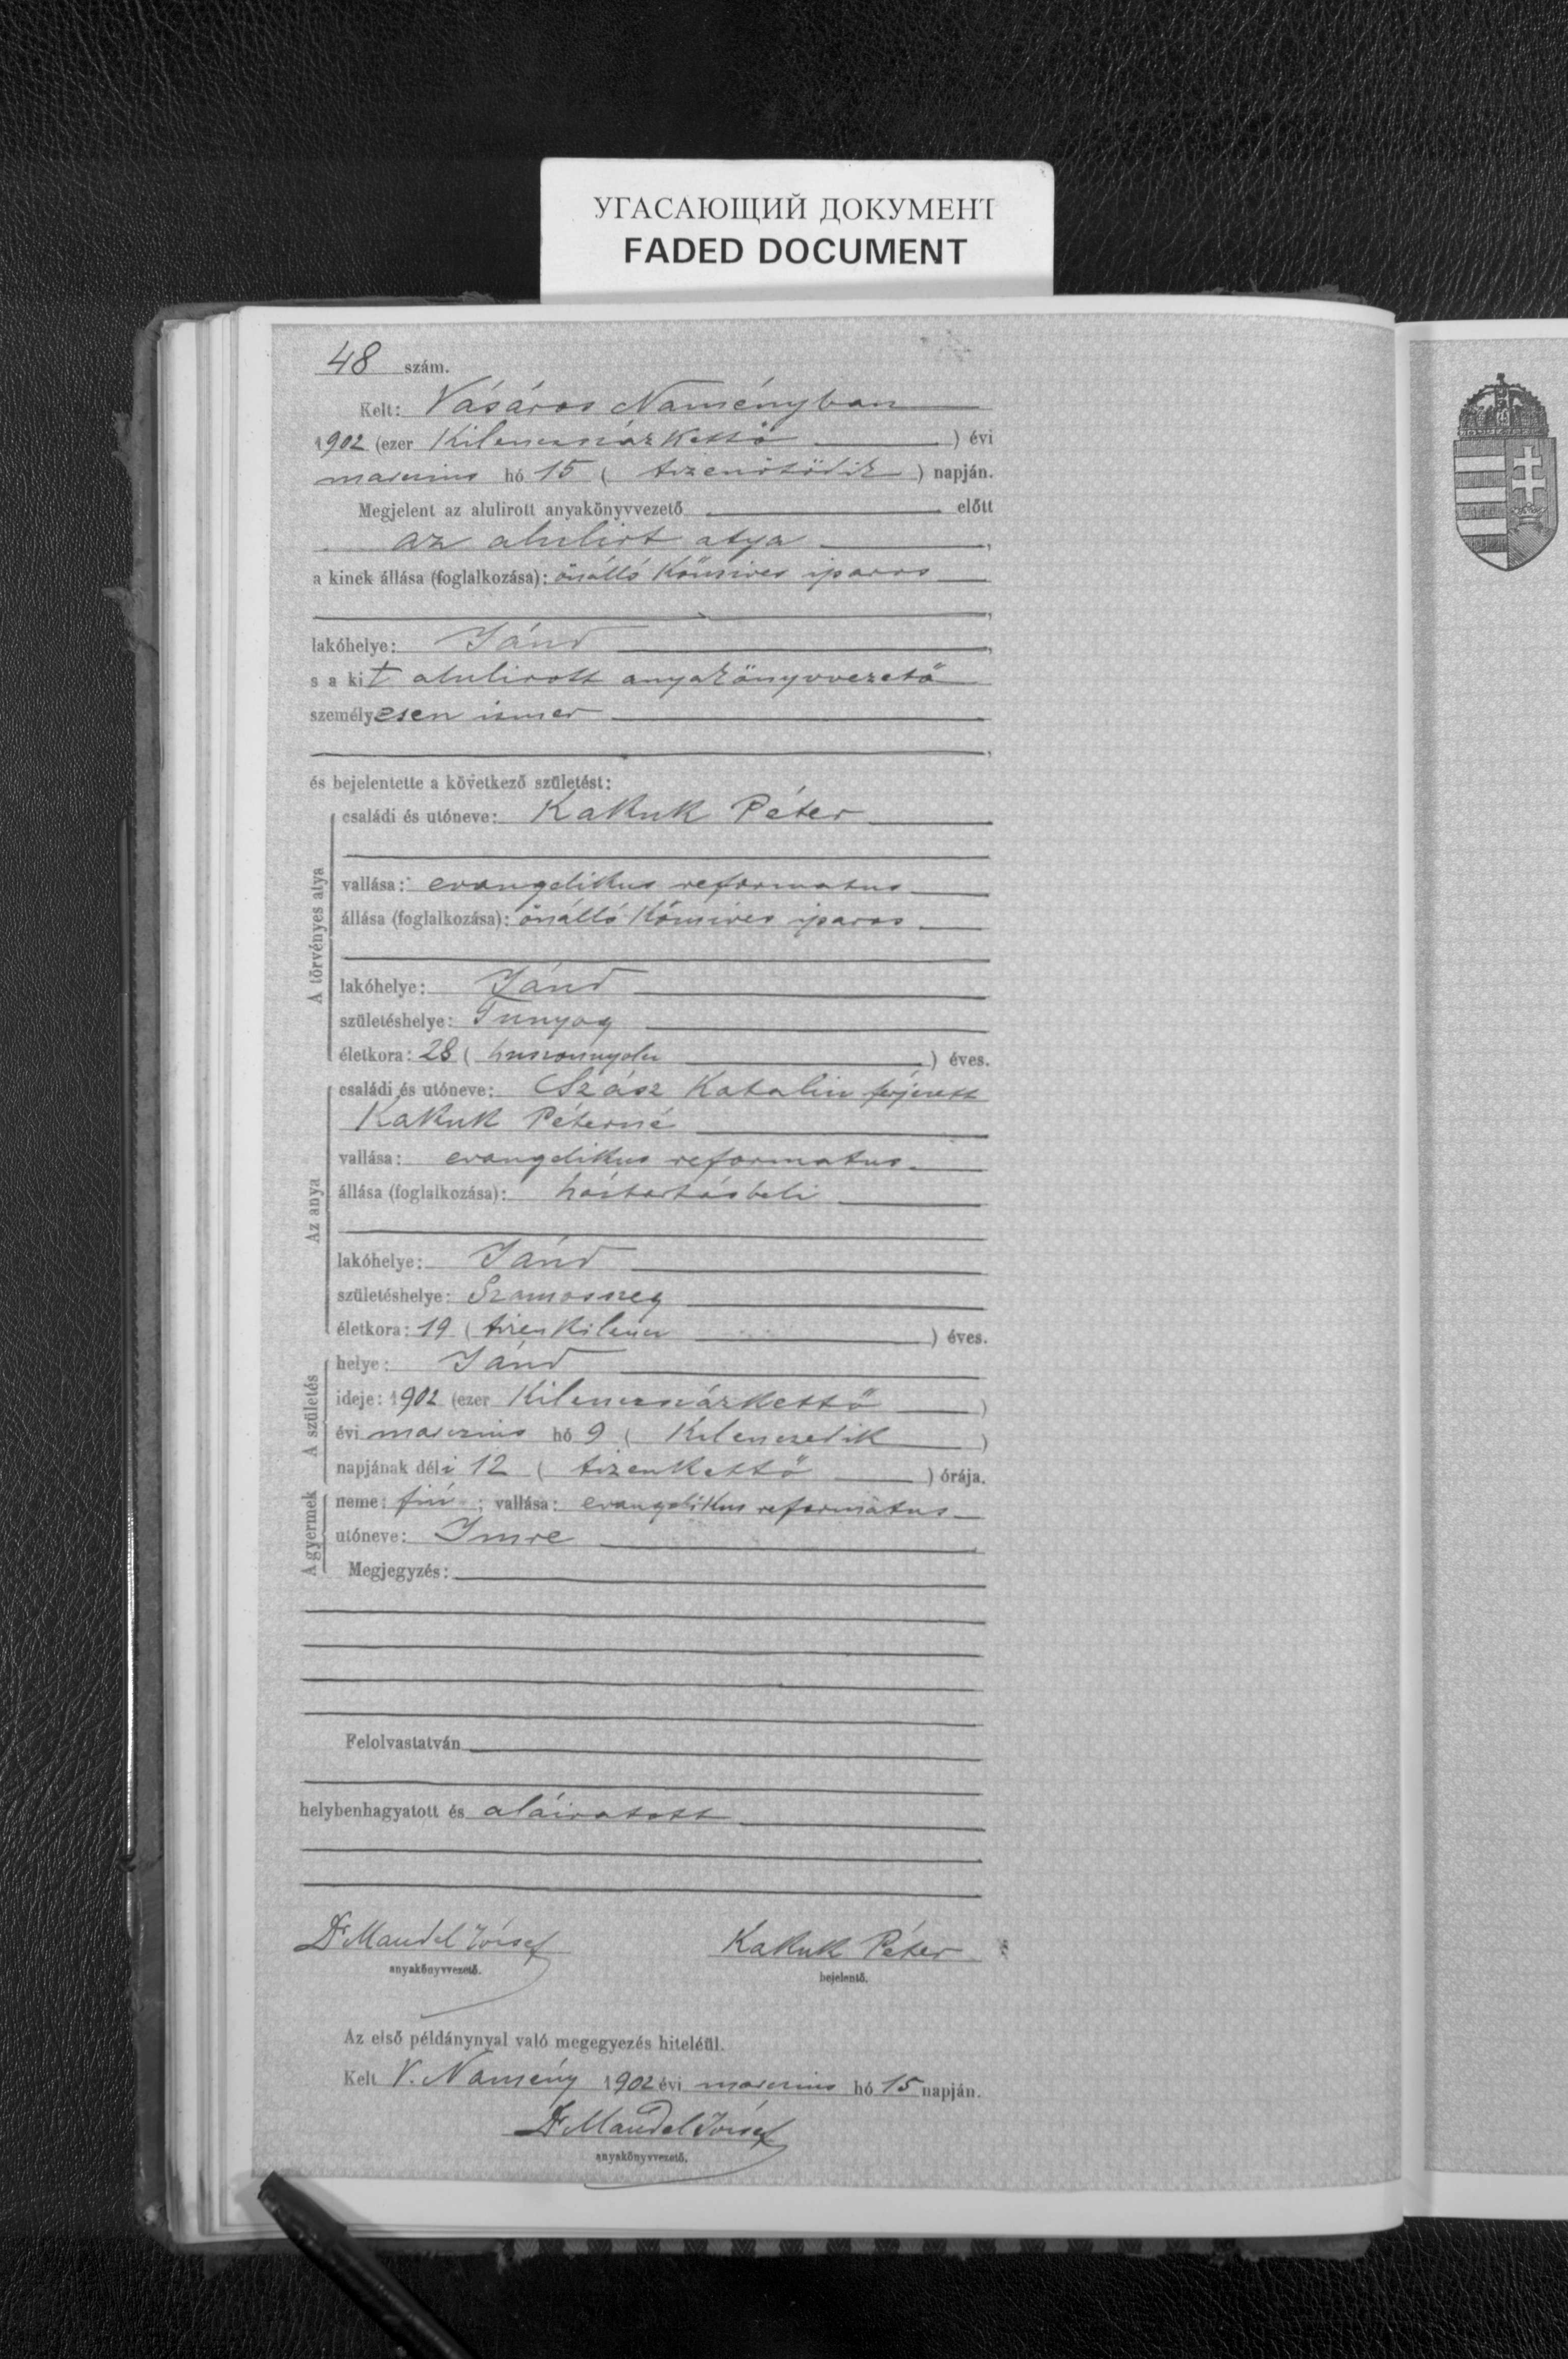 УГАСАЮЩИЙ ДОКУМЕНТ
FADED DOCUMENT
48 szám.
Kelt: Vásáros Naményban
1902 (ezer kilenczszázkettő ) évi
marczius hó 15 ( tizenötödik ) napján.
Megjelent az alulirott anyakönyvvezető előtt
az alulirt atya ,
a kinek állása (foglalkozása): önálló kőmives iparos
,
lakóhelye: Jánd ,
s a kit alulirott anyakönyvvezető
személyesen ismer
,
és bejelentette a következő születést:
A törvényes atya
családi és utóneve: Kakuk Péter
vallása: evangelikus reformatus
állása (foglalkozása): önálló kőmives iparos
lakóhelye: Jánd
születéshelye: Tunyog
életkora: 28 ( husznonnyolcz ) éves.
Az anya
családi és utóneve: Szász Katalin férjezett
Kakuk Péterné
vallása: evangelikus reformatus
állása (foglalkozása): háztartásbeli
lakóhelye: Jánd
születéshelye: Szamosszeg
életkora: 19 ( tizenkilencz ) éves.
A születés
helye: Jánd
ideje: 1902 (ezer kilenczszázkettő )
évi marczius hó 9 ( kilenczedik )
napjának déli 12 ( tizenkettő ) órája.
A gyermek
neme: fiú ; vallása: evangelikus reformatus
utóneve: Imre
Megjegyzés:
Felolvastatván
helybenhagyatott és aláiratott
Dr Mandel József Kakuk Péter
anyakönyvvezető. bejelentő.
Az első példánynyal való megegyezés hiteléül.
Kelt V. Namény 1902 évi marczius hó 15 napján.
Dr Mandel József
anyakönyvvezető.